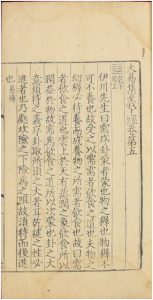 大易集義上經卷第五
乾下
坎上
伊川先生曰需序卦蒙者蒙也物之穉也物穉不
可不養也故受之以需需者飲食之道也夫物之
幼穉必待養而成養物之所需者飲食也故曰需
者飲食之道也雲上於天有蒸潤之象飲食所以
潤益於物故需為飲食之道所以次蒙也卦之大
意須待之義序卦取所須之大者耳乾健之性必
進者也乃處坎險之下險為之阻故須待而後進
也易傳